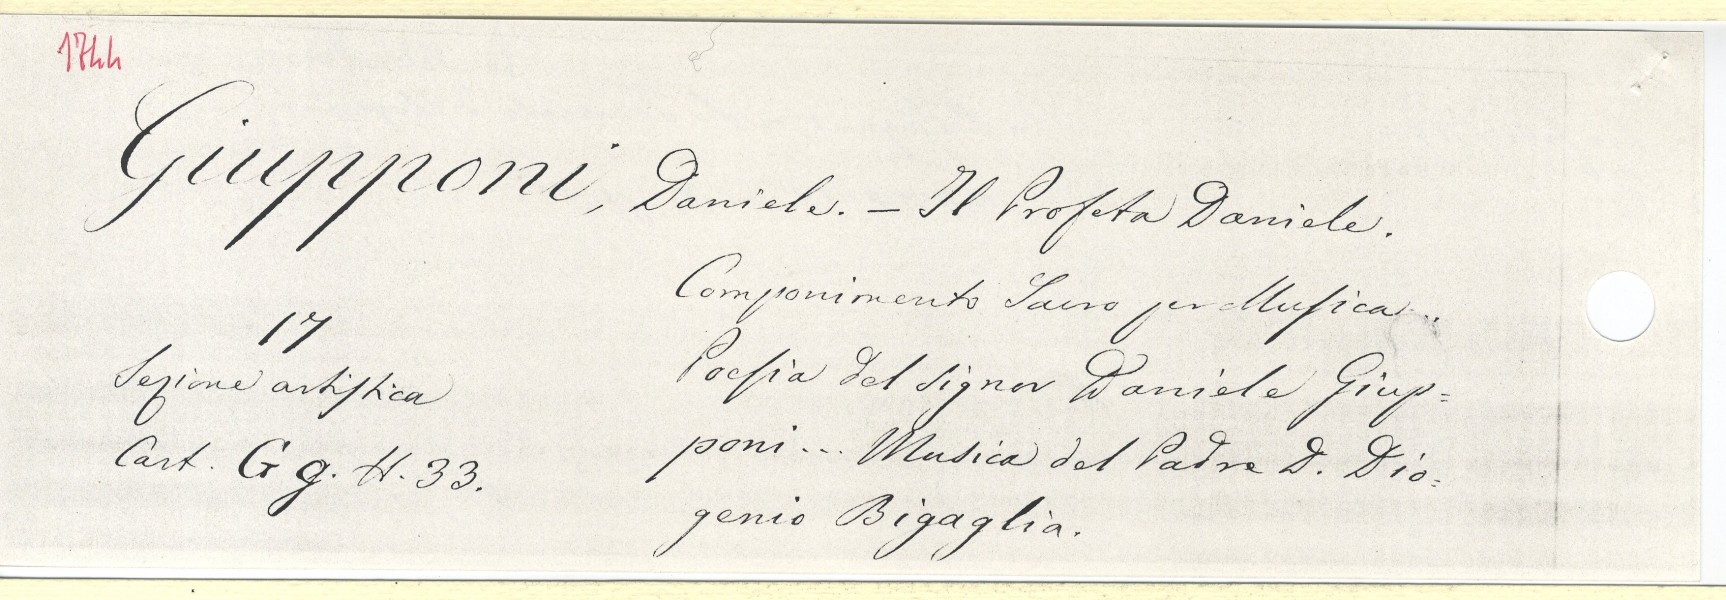 1744
Giupponi, Daniele. – Il Profeta Daniele.
Componimento Sacro per Musica...
17
Sezione artistica
Poesia del signor Daniele Giup=
Cart. G g. H. 33.
poni... Musica del Padre D. Dio=
genio Bigaglia.